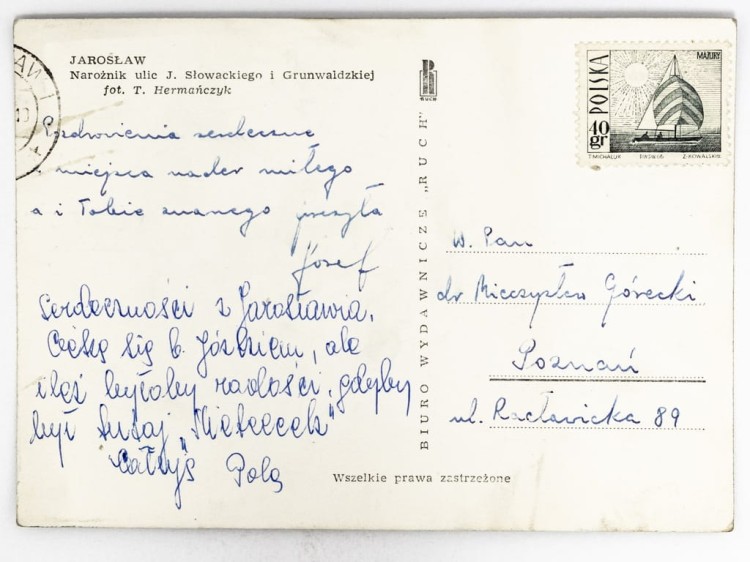 JAROSŁAW
Narożnik ulic J. Słowackiego i Grunwaldzkiej
fot. T. Hermańczyk
Pozdrowienia serdeczne
miejsca nader miłego
a i Tobie znanego przesyła
Józef
Serdeczności z Jarosławia.
Cieszę się b. Józkiem, ale
ileż byłoby radości, gdyby
był tutaj „Mieteczek”
Polę
RUCH
BIURO WYDAWNICZE „RUCH”
POLSKA
MAZURY
40 gr
T. MICHALUK
Z. KOWALSKI
W. Pan
dr Mieczysław Górecki
Poznań
ul. Racławicka 89
Wszelkie prawa zastrzeżone